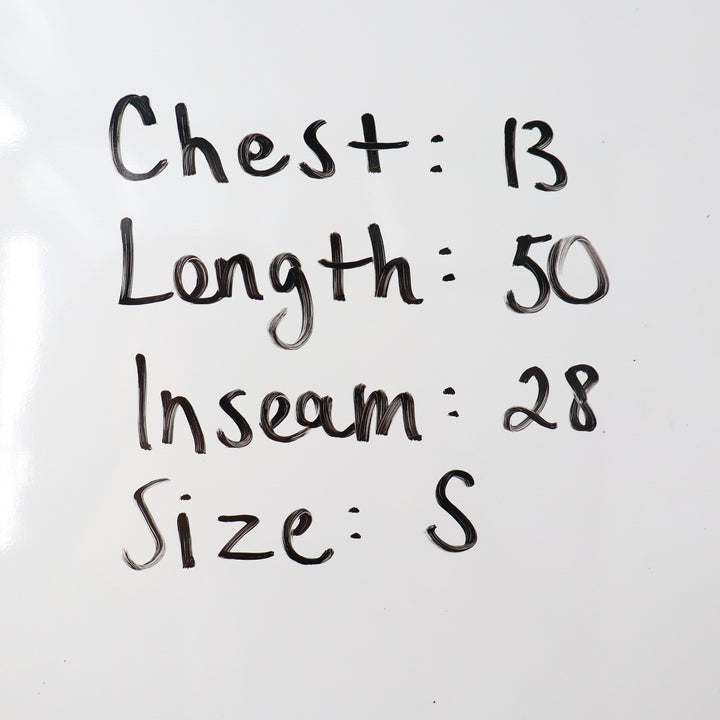 Chest: 13
Length: 50
Inseam: 28
Size: S